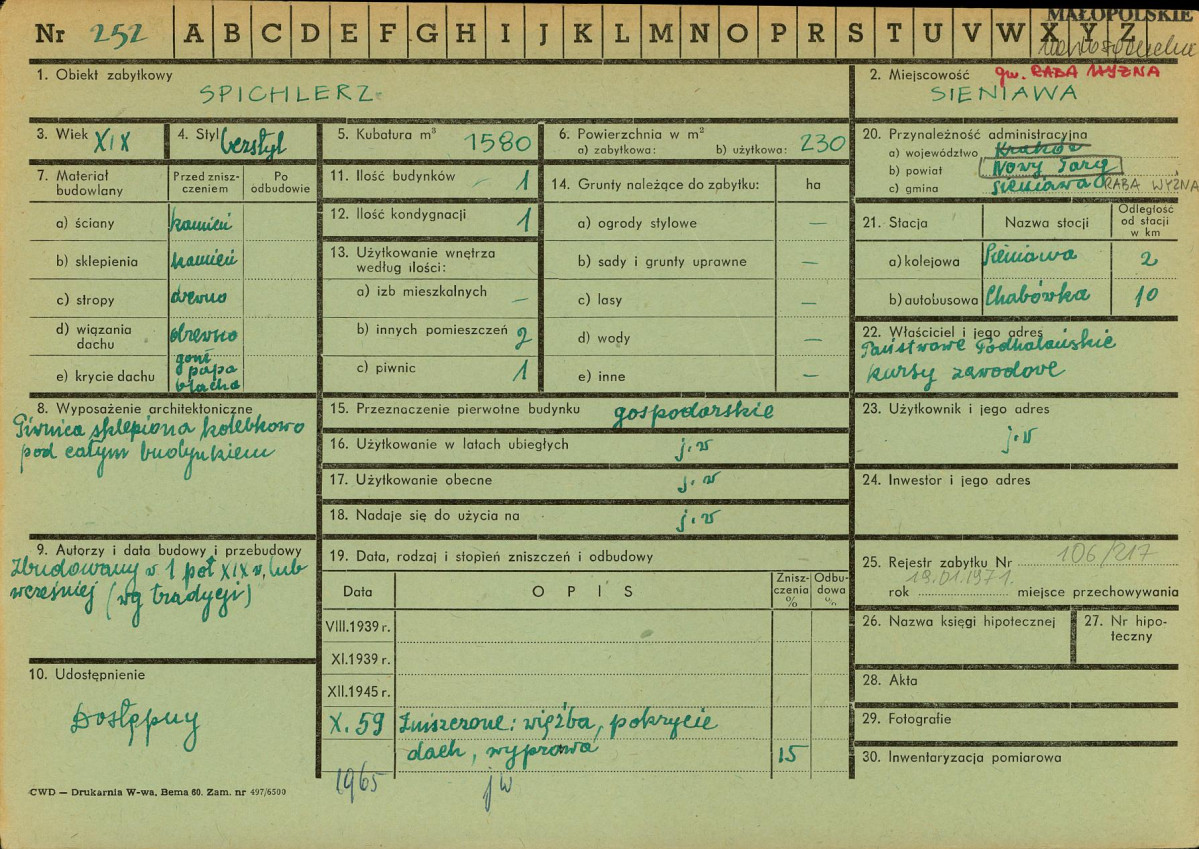 Nr 252 A B C D E F G H I J K L M N O P R S T U V W X Y Z
MAŁOPOLSKIE
nowosądeckie
1. Obiekt zabytkowy
SPICHLERZ
2. Miejscowość gm. RABA WYŻNA
SIENIAWA
3. Wiek XIX
4. Styl bezstyl
5. Kubatura m³ 1580
6. Powierzchnia w m²
a) zabytkowa: b) użytkowa: 230
20. Przynależność administracyjna
a) województwo Kraków
b) powiat Nowy Targ
c) gmina Sieniawa RABA WYŻNA
7. Materiał budowlany
Przed znisz-
czeniem
Po
odbudowie
a) ściany kamień
b) sklepienia kamień
c) stropy drewno
d) wiązania
dachu drewno
e) krycie dachu gont
papa
blacha
11. Ilość budynków 1
12. Ilość kondygnacji 1
13. Użytkowanie wnętrza
według ilości:
a) izb mieszkalnych –
b) innych pomieszczeń 2
c) piwnic 1
14. Grunty należące do zabytku: ha
a) ogrody stylowe –
b) sady i grunty uprawne –
c) lasy –
d) wody –
e) inne –
21. Stacja Nazwa stacji Odległość
od stacji
w km
a) kolejowa Sieniawa 2
b) autobusowa Chabówka 10
22. Właściciel i jego adres
Państwowe Podhalańskie
kursy zawodowe
8. Wyposażenie architektoniczne
Piwnica sklepiona kolebkowo
pod całym budynkiem
15. Przeznaczenie pierwotne budynku gospodarskie
16. Użytkowanie w latach ubiegłych j.w
17. Użytkowanie obecne j.w
18. Nadaje się do użycia na j.w
23. Użytkownik i jego adres
j.w
24. Inwestor i jego adres
9. Autorzy i data budowy i przebudowy
Zbudowany w 1 poł XIX w, lub
wcześniej (wg tradycji)
19. Data, rodzaj i stopień zniszczeń i odbudowy
Data OPIS Znisz-
czenia
%
Odbu-
dowa
%
VIII.1939 r.
XI.1939 r.
XII.1945 r.
X.59 Zniszczone: więźba, pokrycie
dach, wyprawa 15
1965 jw
25. Rejestr zabytku Nr 106/217
19.01.1971.
rok miejsce przechowywania
26. Nazwa księgi hipotecznej
27. Nr hipo-
teczny
10. Udostępnienie
Dostępny
28. Akta
29. Fotografie
30. Inwentaryzacja pomiarowa
CWD — Drukarnia W-wa, Bema 60. Zam. nr 497/6500